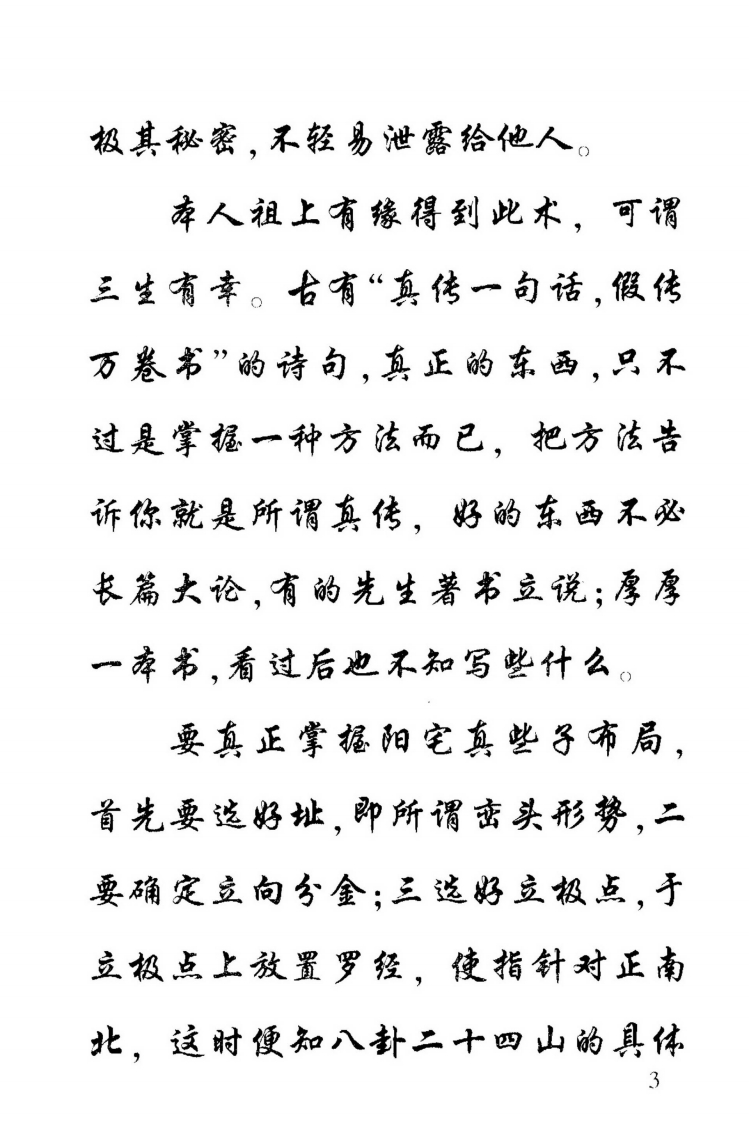 极其秘密,不轻易泄露给他人。
本人祖上有缘得到此术，可谓
三生有幸。古有“真传一句话,假传
万卷书”的诗句,真正的东西,只不
过是掌握一种方法而已，把方法告
诉你就是所谓真传，好的东西不必
长篇大论,有的先生著书立说;厚厚
一本书,看过后也不知写些什么。
要真正掌握阳宅真些子布局,
首先要选好址,即所谓峦头形势,二
要确定立向分金;三选好立极点,于
立极点上放置罗经，使指针对正南
北，这时便知八卦二十四山的具体
3